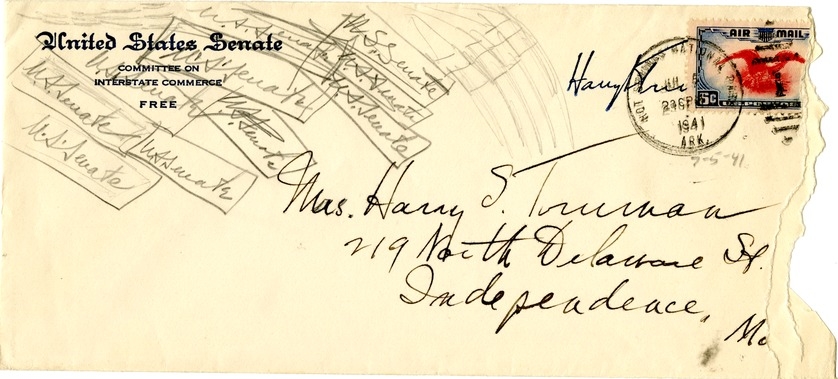 United States Senate
COMMITTEE ON
INTERSTATE COMMERCE
FREE
U.S. Senate
U.S. Senate
U.S. Senate
U.S. Senate
U.S. Senate
U.S. Senate
U.S. Senate
U.S. Senate
U.S. Senate
U.S. Senate
Harry
AIR MAIL
6c
NATIONAL
JUL 5
1941
ARK.
7-5-41
Mrs. Harry S. Truman
219 North Delaware St.
Independence,
Mo